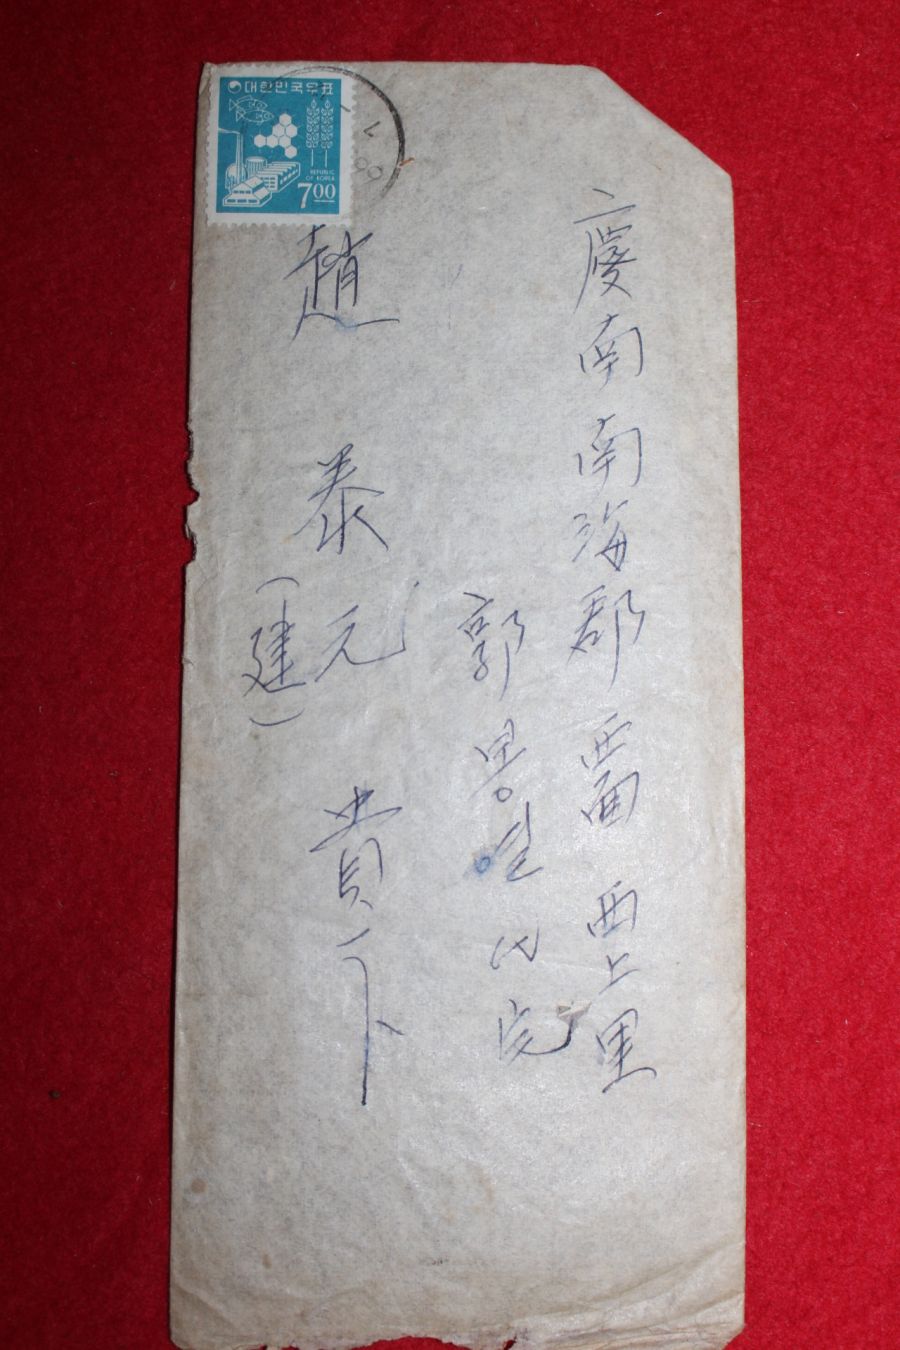 대한민국우표
REPUBLIC
OF KOREA
700
慶南 南海郡 西面 西上里
郭
趙 泰元 貴下
(建)